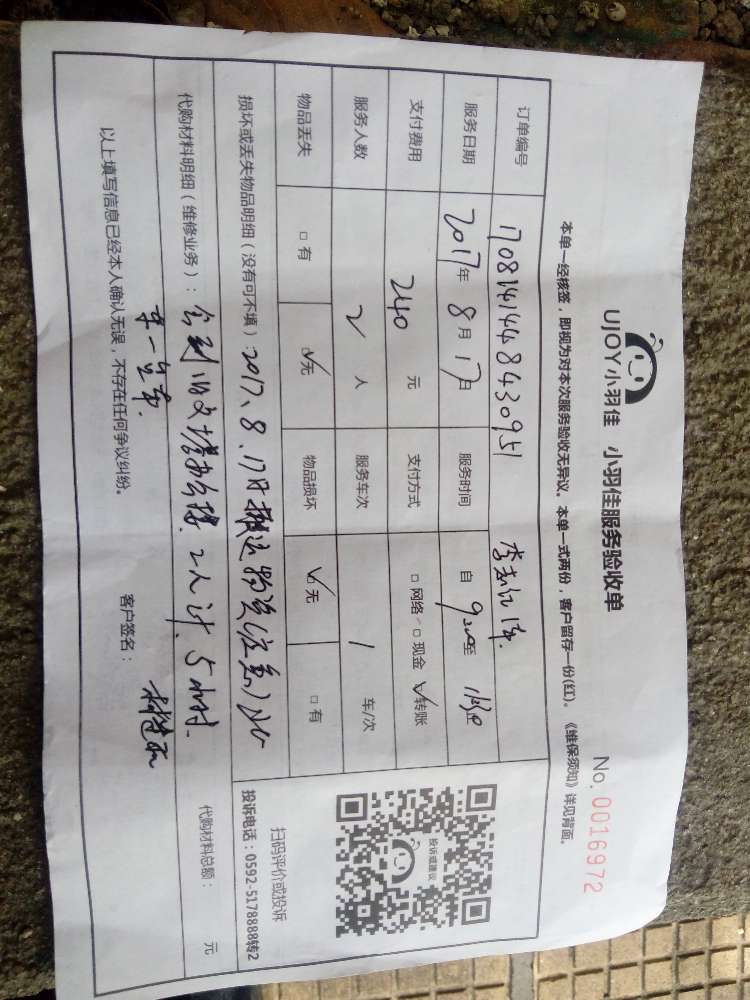 UJOY小羽佳 小羽佳服务验收单
No. 0016972
本单一经核签，即视为对本次服务验收无异议。本单一式两份，客户留存一份(红)。《维保须知》详见背面。
订单编号 1708141448430951
服务日期 2017年 8月 17日 服务时间 自 9:00至
支付费用 240 元 支付方式 □网络 □现金 ☑转账
服务人数 2 人 服务车次 1 车/次
物品丢失 □有 ☑无 物品损坏 ☑无 □有
投诉或建议
扫码评价或投诉
投诉电话：0592-5178888转2
损坏或丢失物品明细（没有可不填）：2017、8、17日搬运物资
代购材料明细（维修业务）： 2人计、5小时、
代购材料总额： 元
以上填写信息已经本人确认无误，不存在任何争议纠纷。 客户签名：